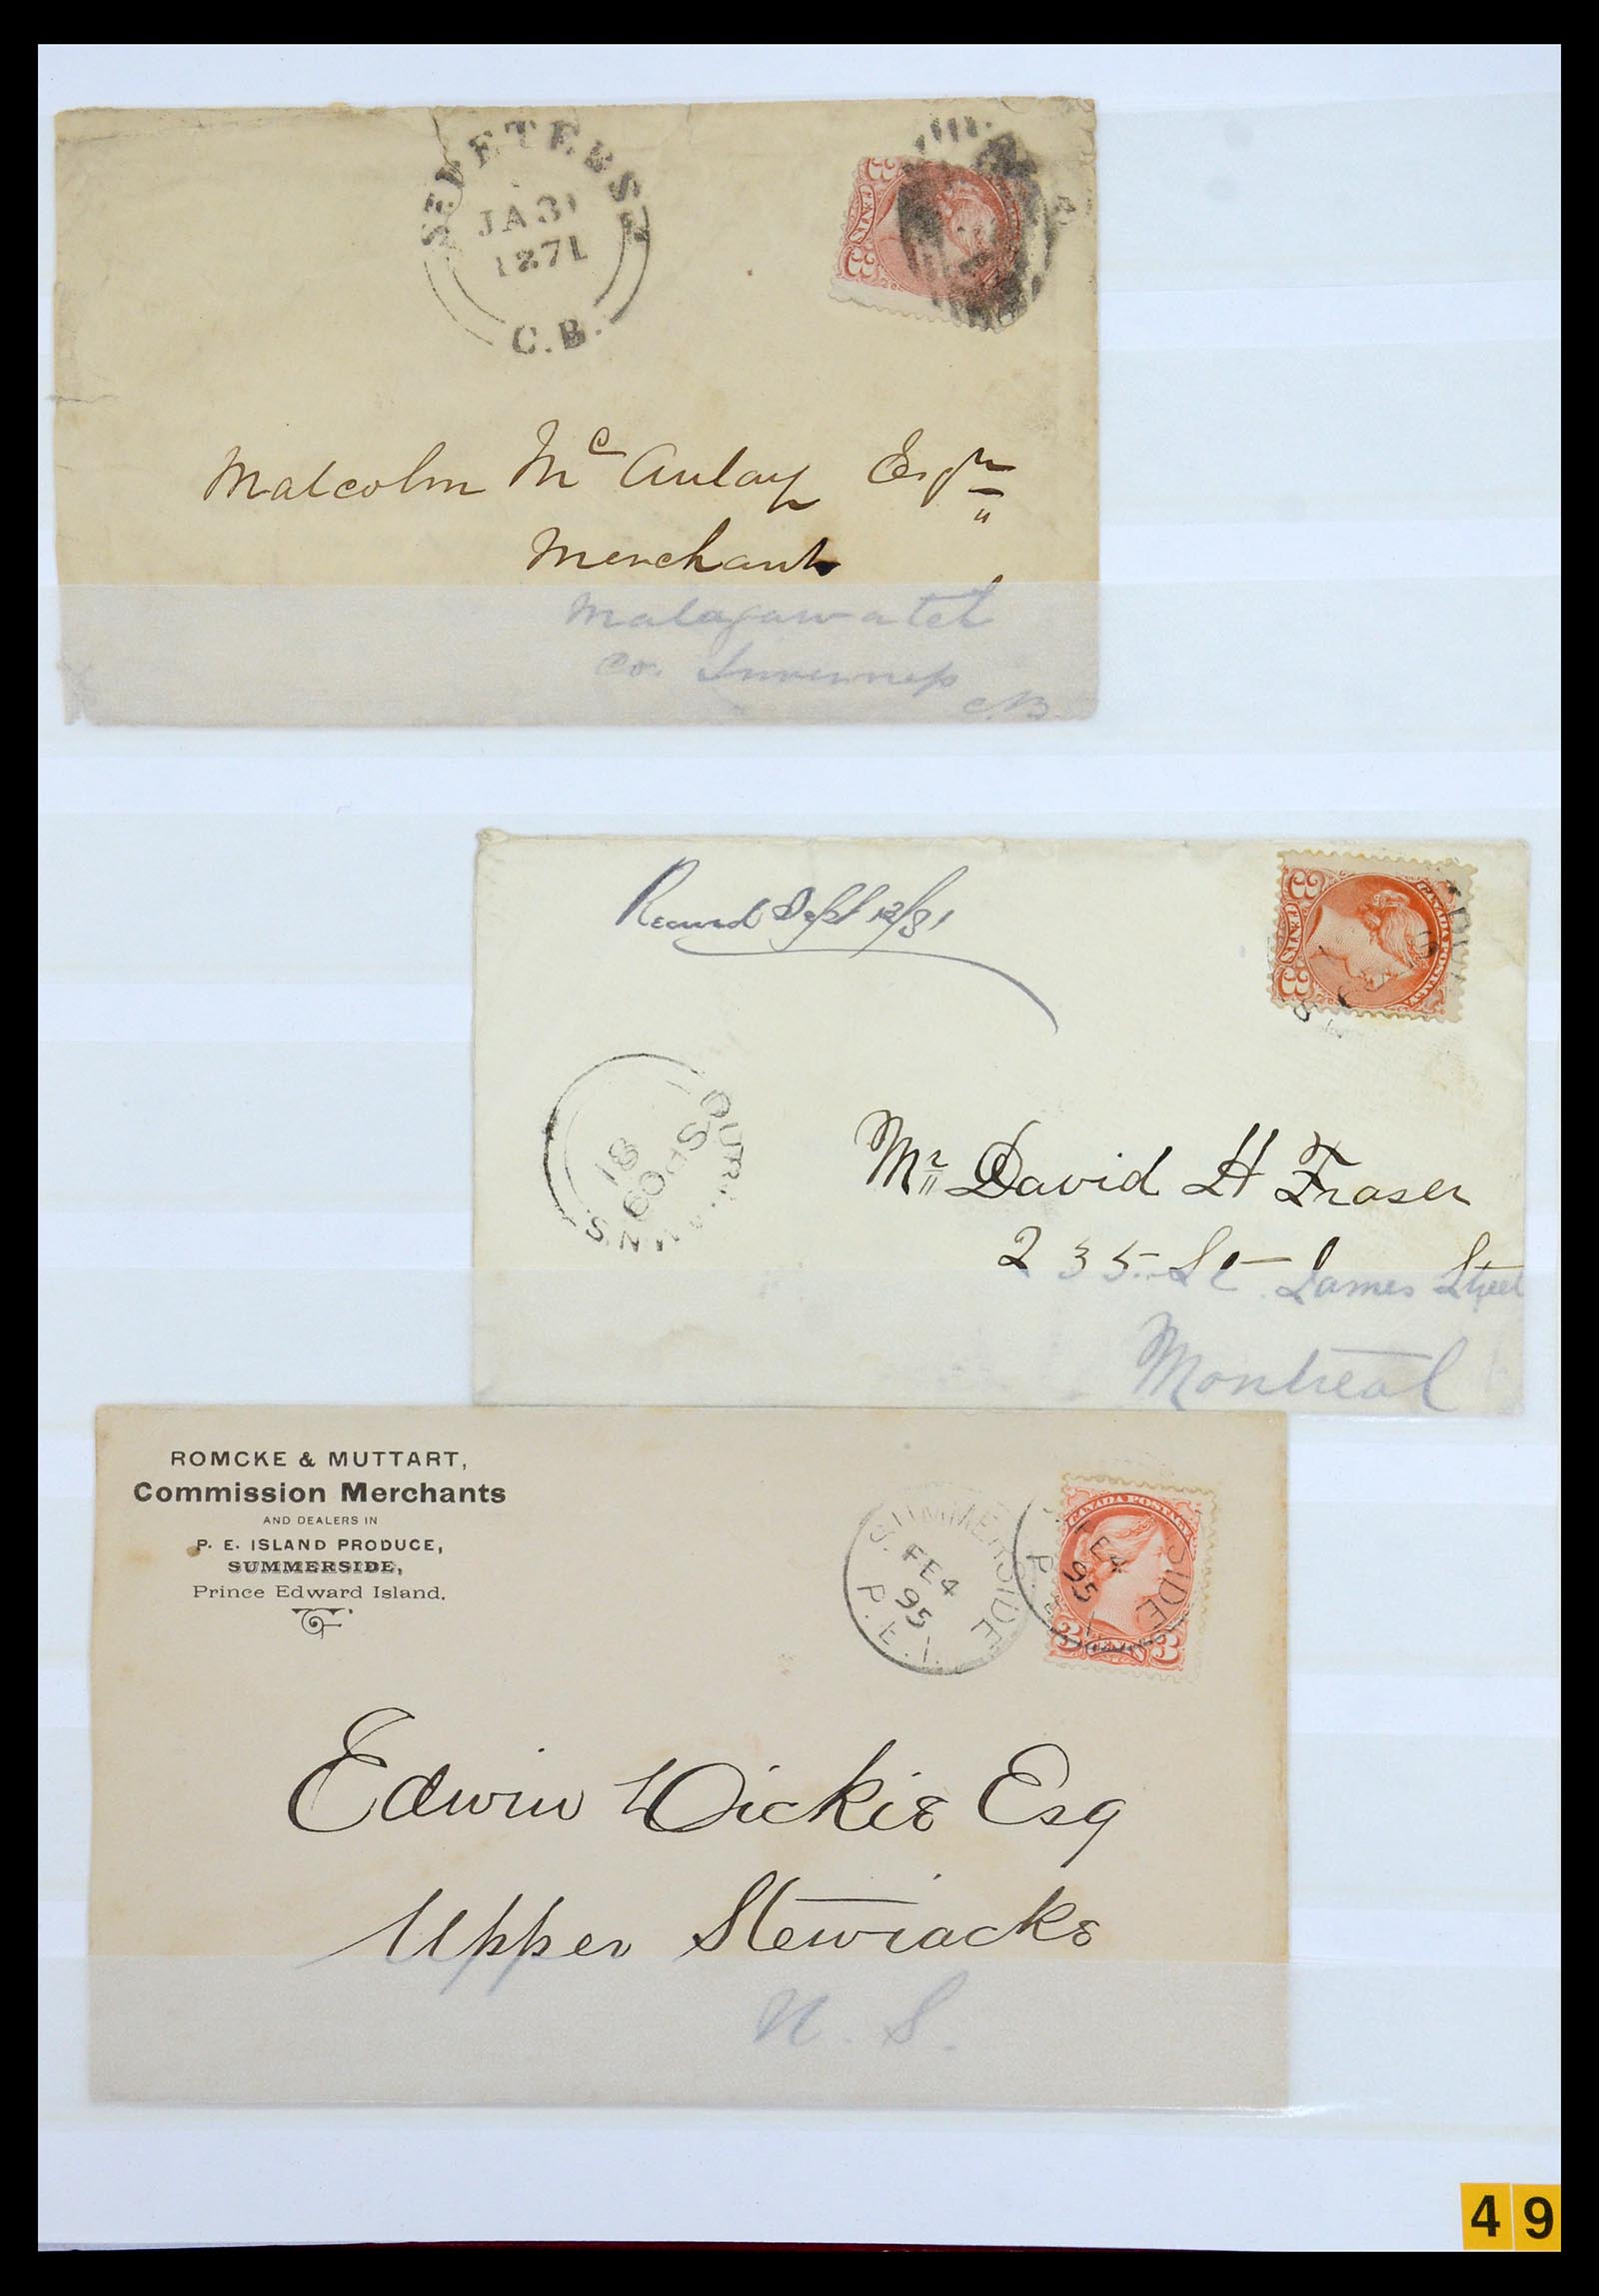 ST. PETERS
JA 31
1871
C.B.
3 CENTS 3
Malcolm McAulay Esqr
Merchant
Malagawatch
Co. Inverness
C.B.
Received Sept 12/81
CANADA POSTAGE
3 CENTS 3
SP 09
81
N.S.
Mr David H Fraser
235 St James Street
Montreal
ROMCKE & MUTTART,
Commission Merchants
AND DEALERS IN
P. E. ISLAND PRODUCE,
SUMMERSIDE,
Prince Edward Island.
SUMMERSIDE
FE 4
95
P.E.I.
CANADA POSTAGE
SIDE
FE 4
95
P.E.I.
3 CENTS 3
Edwin Dickie Esq
Upper Stewiacke
N. S.
49